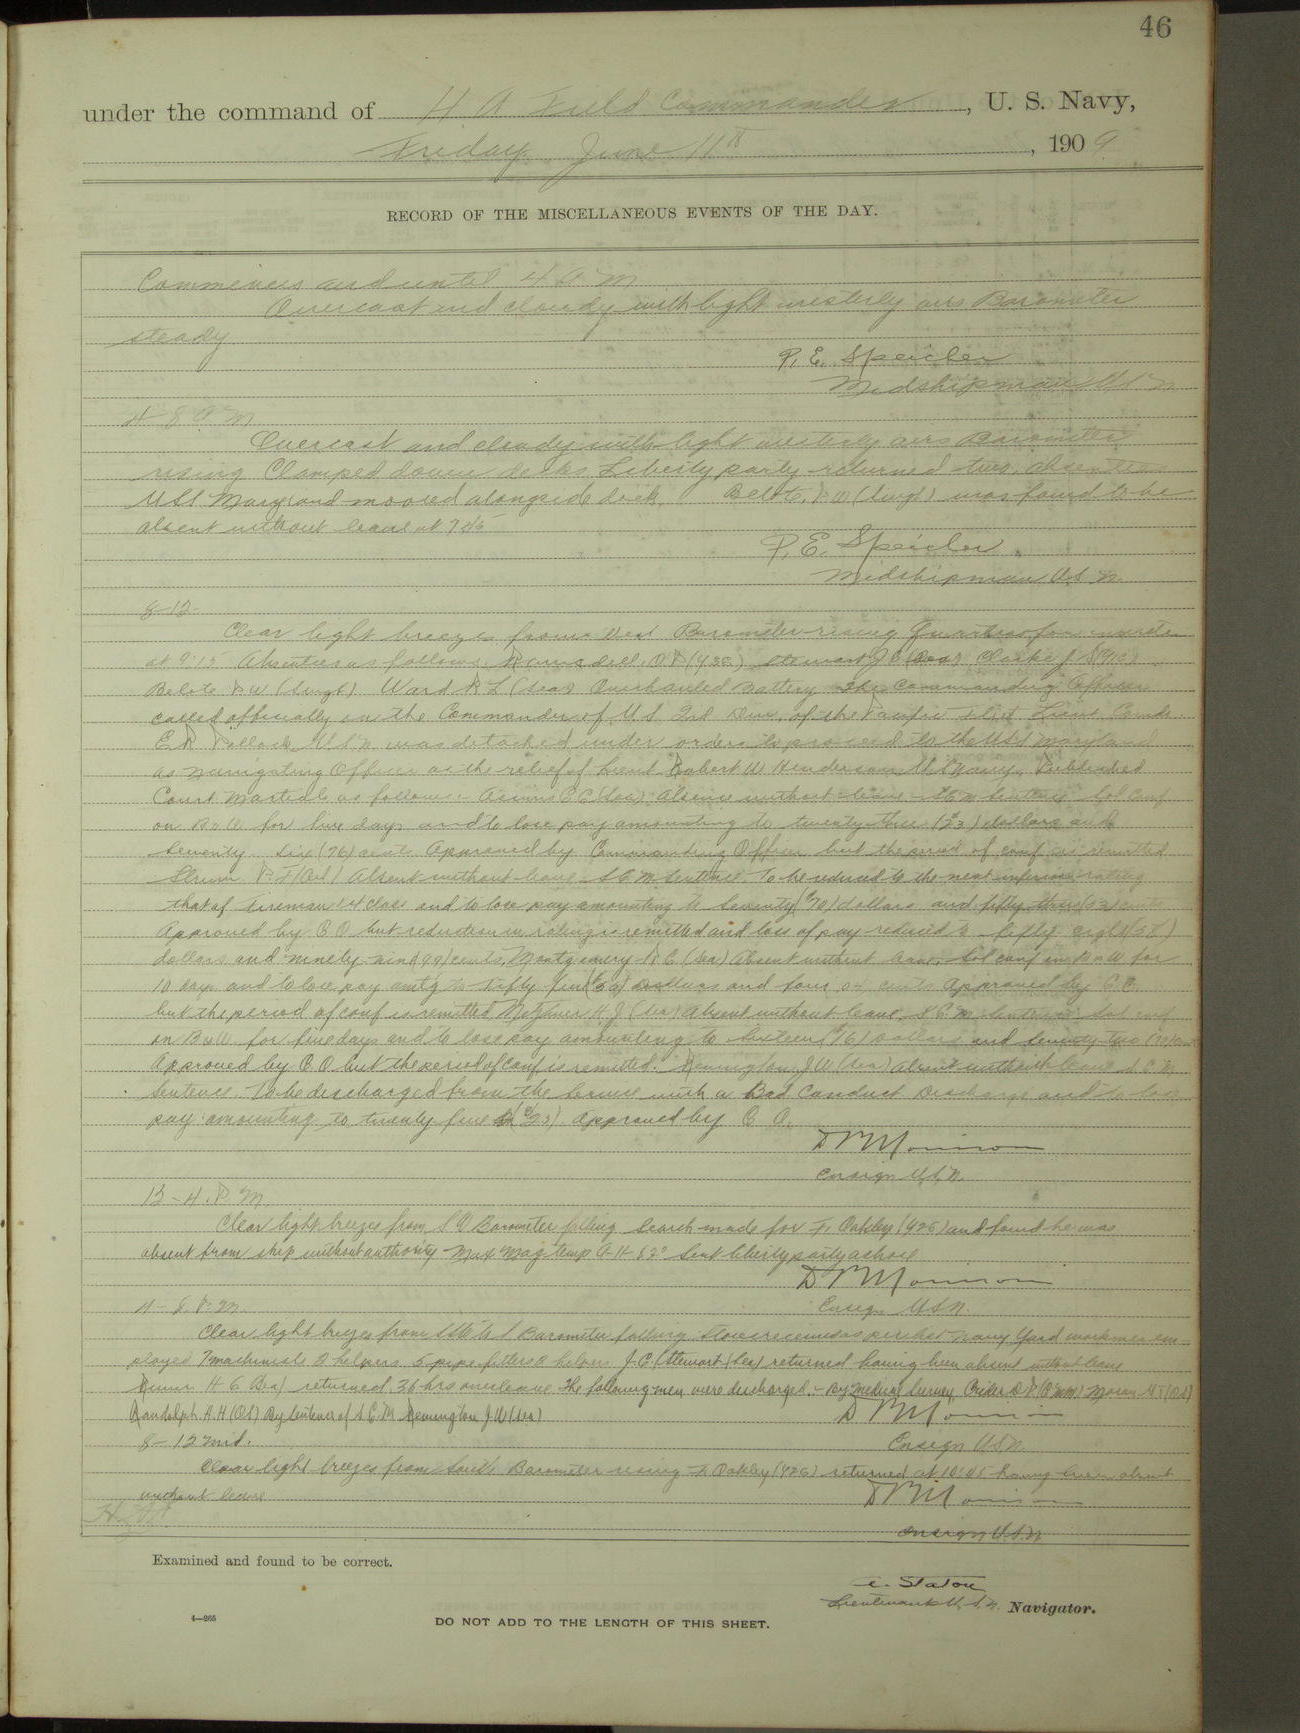 46
under the command of H A Field Commander, U. S. Navy,
Friday June 11th, 1909
RECORD OF THE MISCELLANEOUS EVENTS OF THE DAY.
Commences and until 4 A M
Overcast and cloudy with light westerly airs Barometer
steady
P. E. Speicher
Midshipman U S N
4-8 A M
Overcast and cloudy with light westerly airs Barometer
rising Clamped down decks. Liberty party returned two absentees
USS Maryland moored alongside dock. Belote, (Sergt) was found to be
absent without leave at
P. E. Speicher
Midshipman U.S. N.
8-12-
Clear light breezes from West Barometer rising Quarters for muster
at 9:15 Absentees as follows: Stewart J C (Sea) Clarke J
Belote (Sergt) Ward R L (Sea) Overhauled Battery The Commanding Officer
called officially on the Commander of U S 2nd Div. of the Pacific Fleet Lieut Comdr
E R Pollock U S N was detached under orders to proceed to the USS Maryland
as Navigating Officer as the relief of Lieut Robert W Henderson U S Navy. Published
Court Martials as follows:- C C (Sea) Absence without leave S C M Sentence Sol Conf
on B & W for five days and to lose pay amounting to twenty three ($23) dollars and
seventy six (76) cents Approved by Commanding Officer but the period of conf is remitted
Absent without leave S C M Sentence. To be reduced to the next inferior rating
that of fireman 1st class and to lose pay amounting to seventy ($70) dollars and fifty three (53) cents
Approved by C O but reduction in rating is remitted and loss of pay reduced to fifty eight (58)
dollars and ninety-nine (99) cents, Montgomery R C (Sea) Absent without leave, Sol conf on B & W for
10 days and to lose pay amtg to fifty dollars and four 04 cents Approved by C.O.
but the period of conf is remitted H. J (Sea) Absent without leave, S C M Sentence Sol conf
on B & W for five days and to lose pay amounting to sixteen ($16) Dollars and seventy two (72) cents
Approved by C O but the period of conf is remitted. Remington J W (Sea) absent without leave S C M
Sentence To be discharged from the Service with a Bad Conduct Discharge and to lose
pay amounting to twenty five ($25) Approved by C O.
Ensign U.S.N.
12-4. P M
Clear light breezes from S W Barometer falling Search made for F. Oakley and found he was
absent from ship without authority Max Mag temp A-H 82° Sent liberty party ashore
Ensign U S N.
4-8 P. M.
Clear light breezes from Barometer falling Stores received as per list Navy Yard workmen em
ployed 7 machinists 8 helpers 5 pipe fitters 8 helpers J. C. Stewart (Sea) returned having been absent without leave
H G (Sea) returned 36 hrs overleave The following men were discharged:- By Medical Survey
Randolph H. H (OS) By Sentence of S. C. M. Remington J W (Sea)
Ensign U S N.
8-12 Mid.
Clear light breezes from South Barometer rising F Oakley returned at 10:05 having been absent
without leave
Ensign U.S.N.
Examined and found to be correct.
A. Staton
Lieutenant U.S.N. Navigator.
4—265
DO NOT ADD TO THE LENGTH OF THIS SHEET.